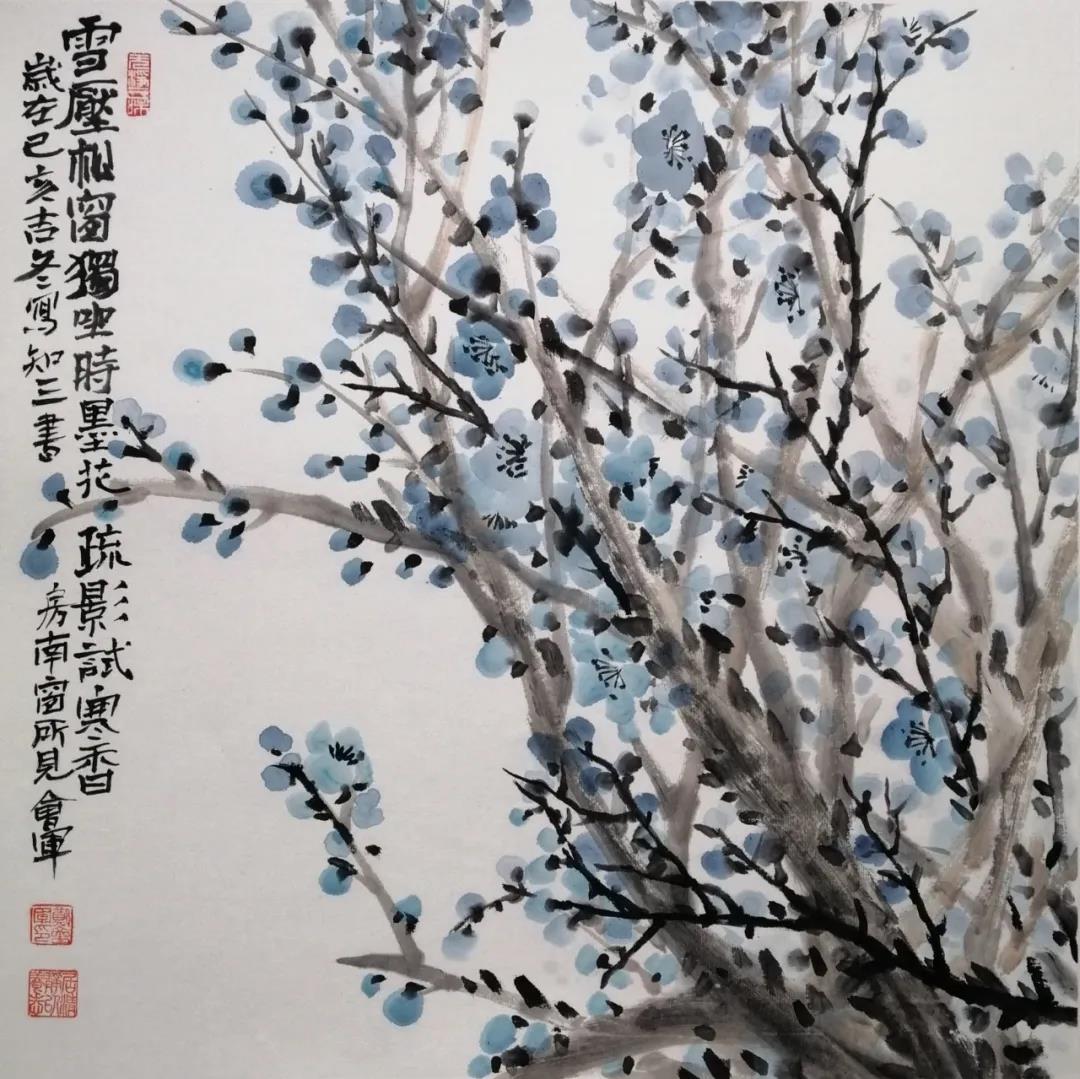 雪壓松窗獨坐時墨花疏影試寒香
歲在己亥吉冬寫知三書房南窗所見會軍